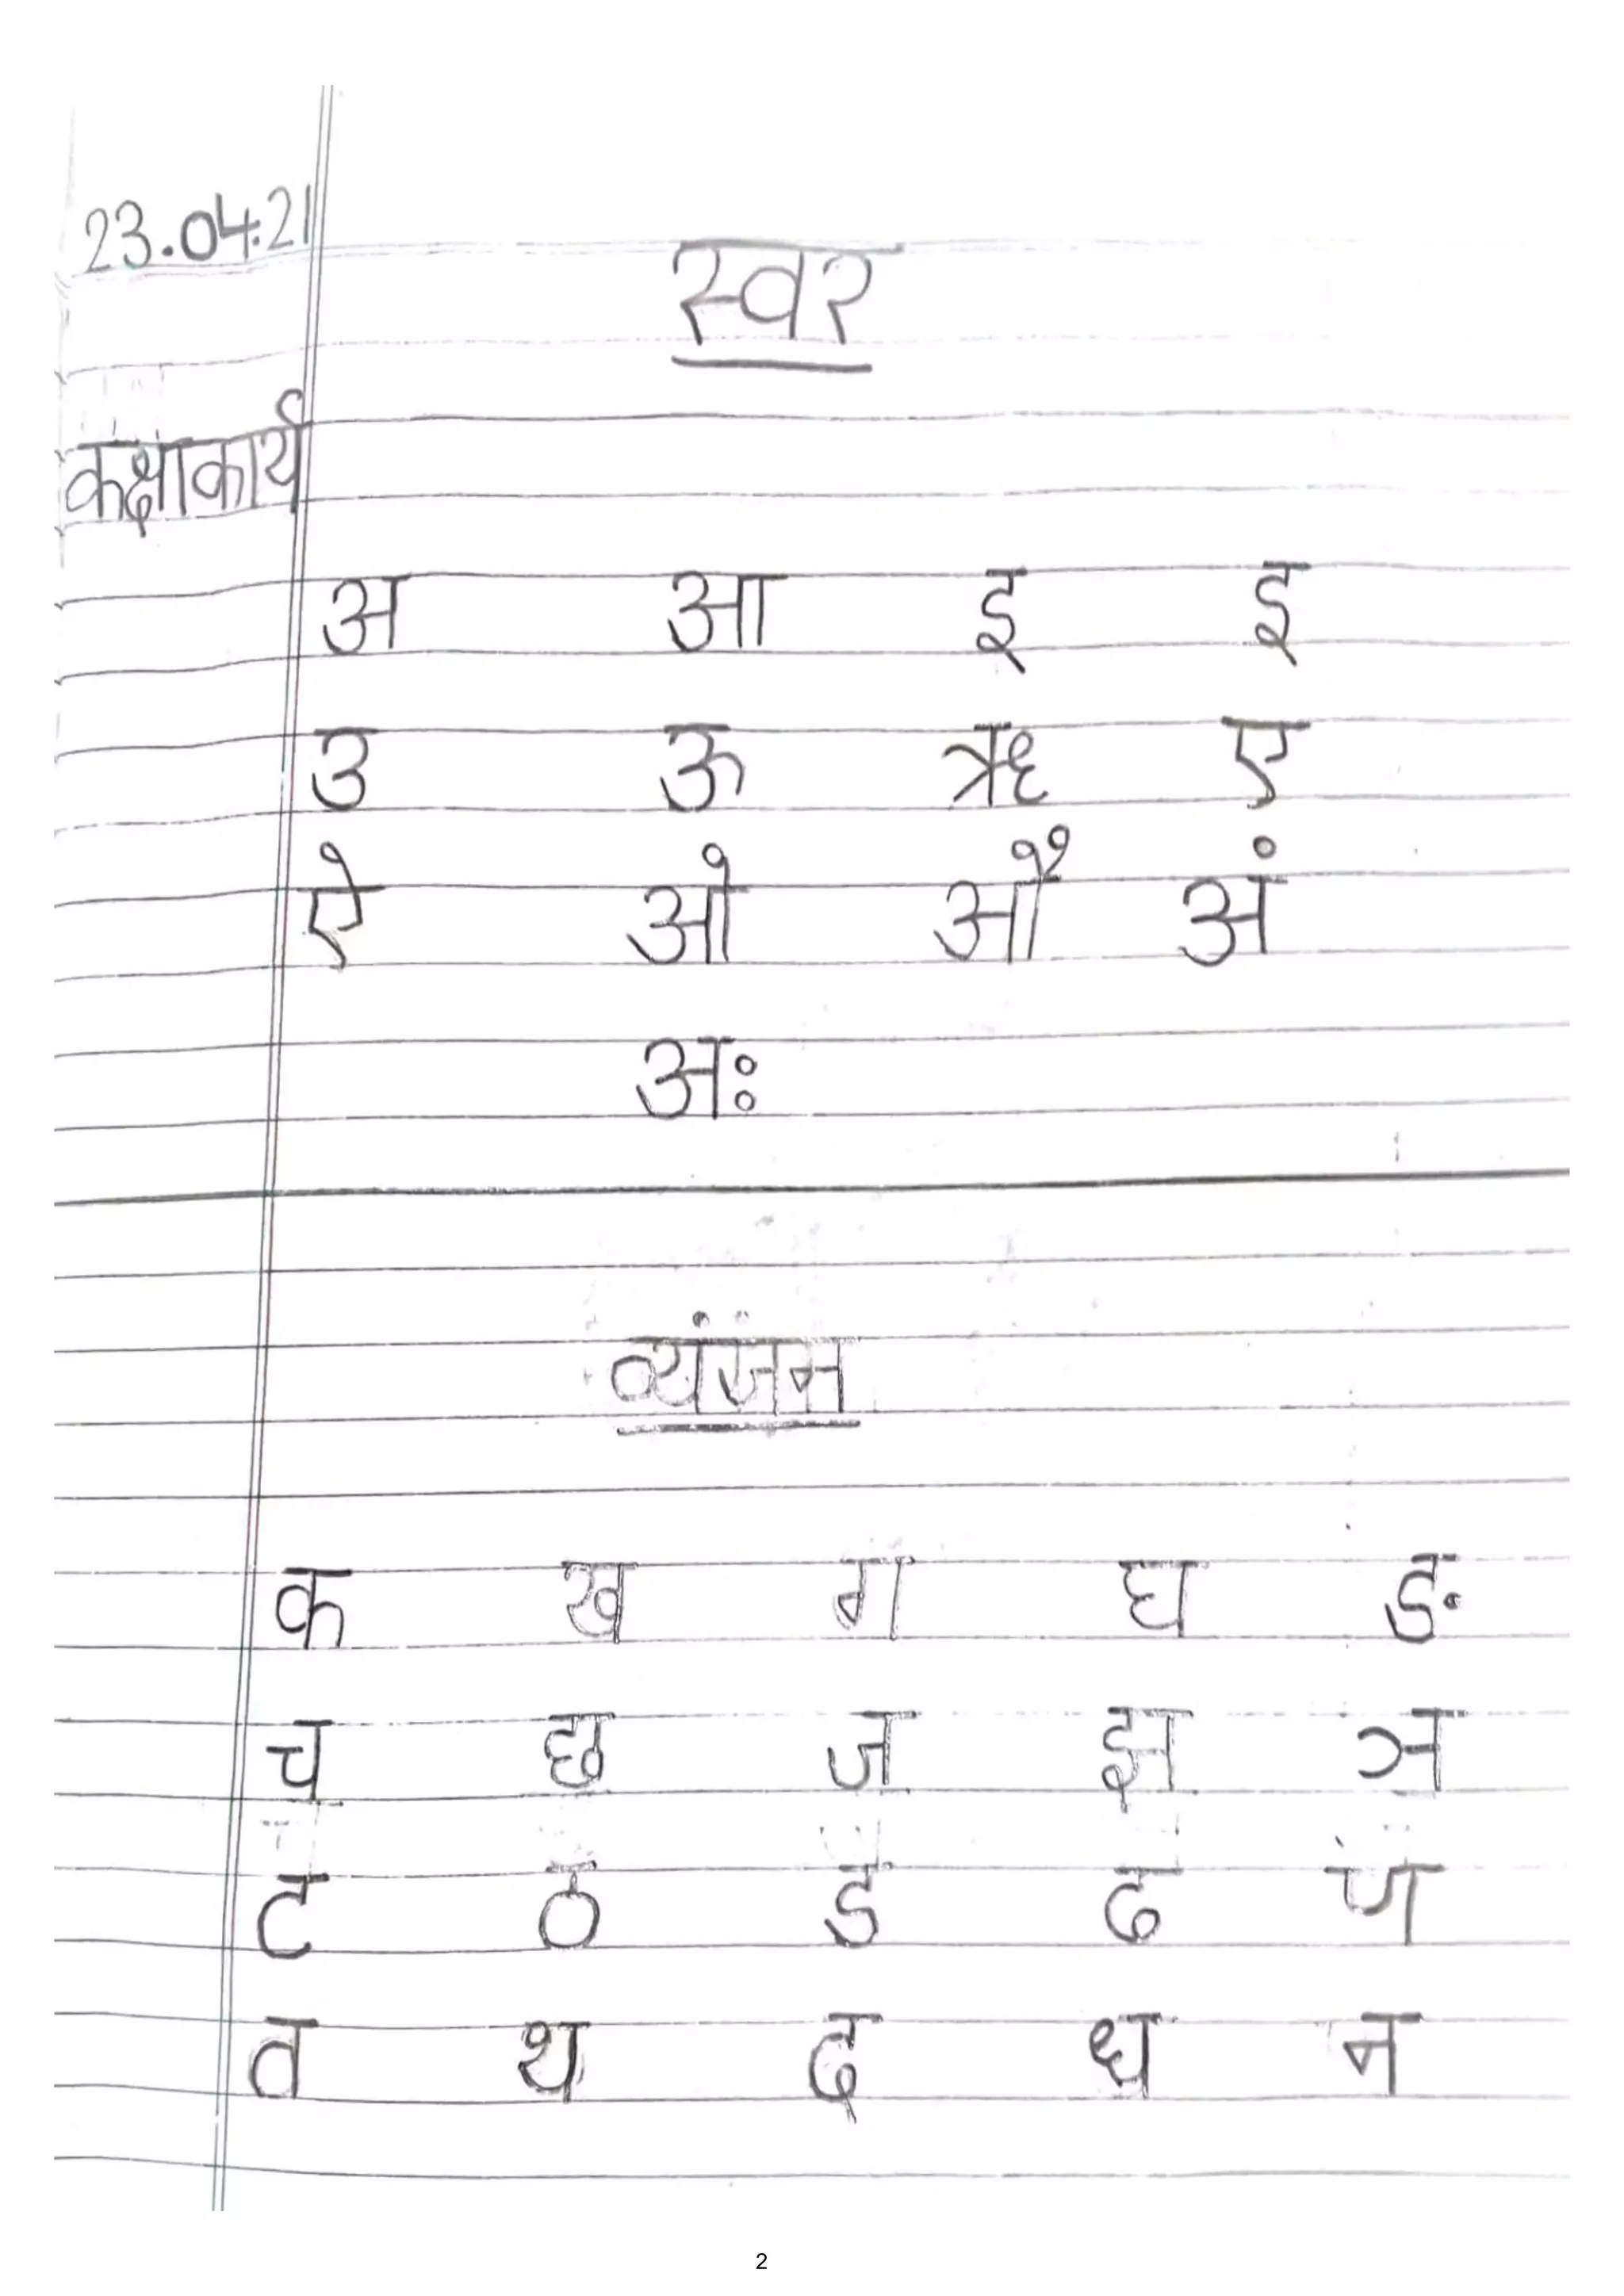 23.04.21
स्वर
कक्षाकार्य
अ आ इ इ
उ ऊ ऋ ए
ऐ ओ औ अं
अः
व्यंजन
क ख ग घ ङ
च छ ज झ ञ
ट ठ ड ढ ण
त थ द ध न
2